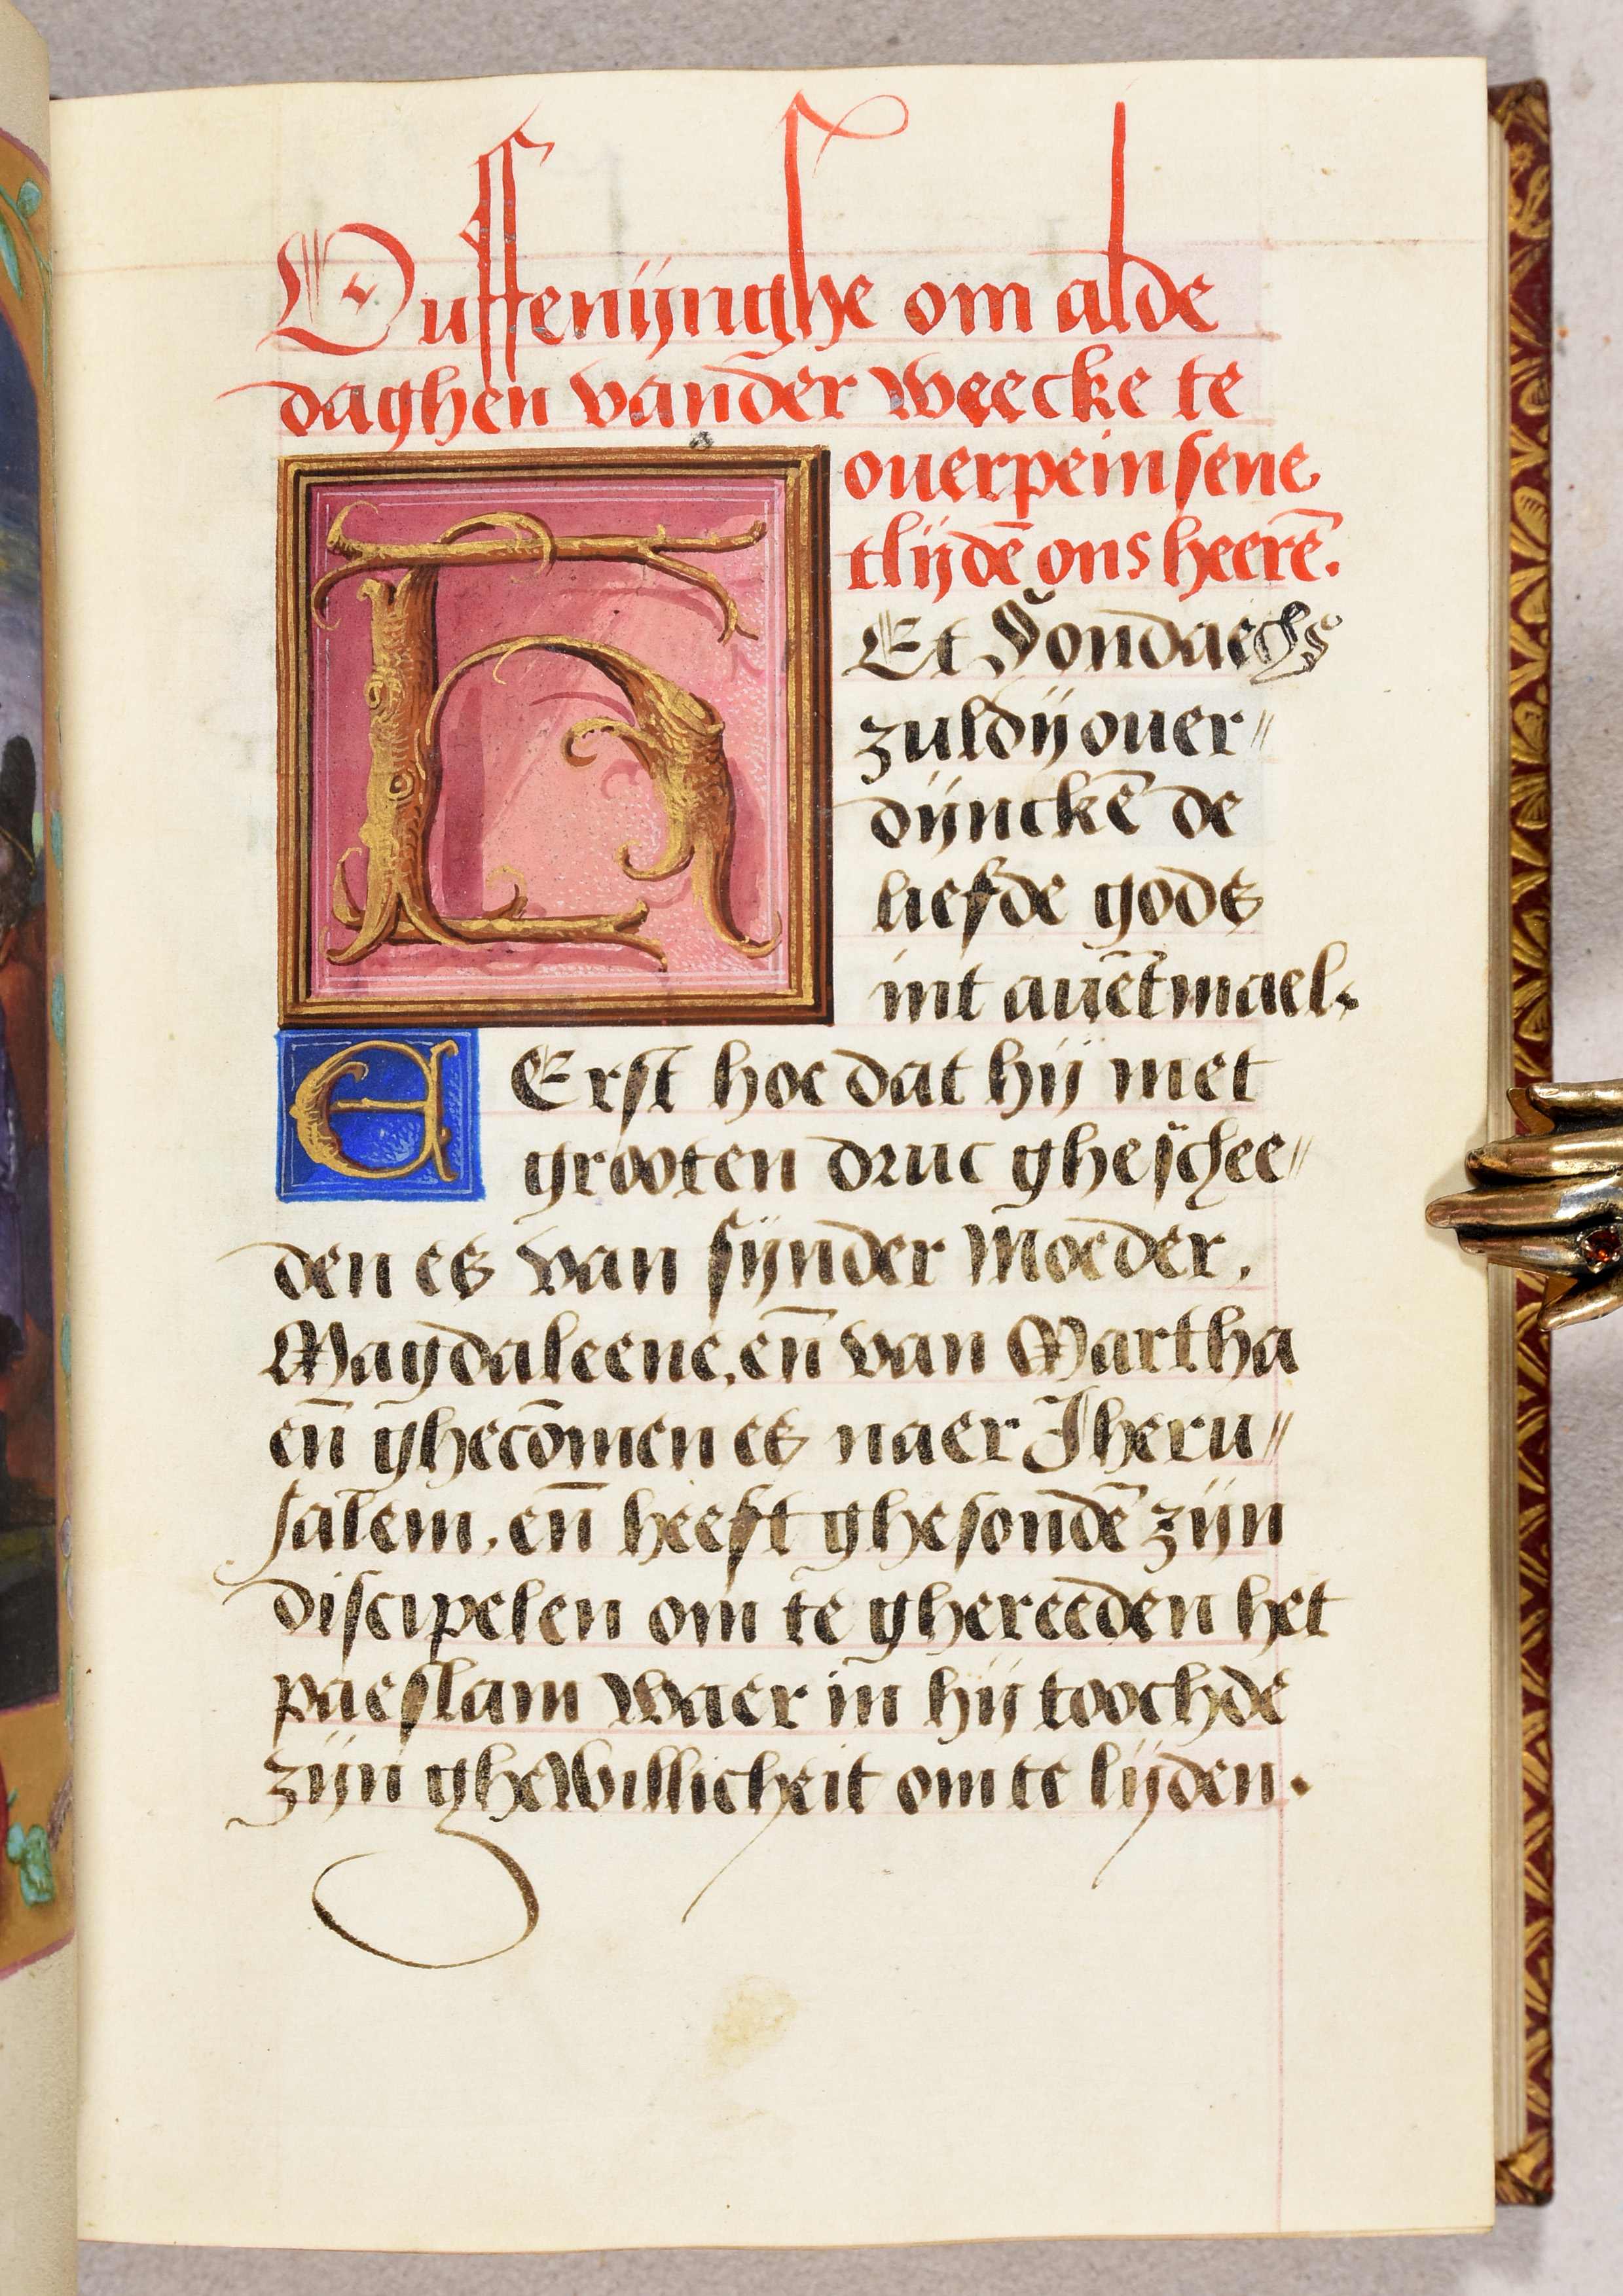 Ouffenijnghe om alde
daghen vander weecke te
ouerpeinsene
tlijdē ons heerē.
HEt Sondaechs
zuldij ouer〃
dijnckē de
liefde gods
int auētmael.
EErst hoe dat hij met
grooten druc gheschee〃
den es van sijnder Moeder,
Magdaleene, en̄ van Martha
en̄ ghecōmen es naer Jheru〃
salem, en̄ heeft ghesondē zijn
discipelen om te ghereeden het
paeslam waer in hij toochde
zijn ghewillicheit om te lijden.